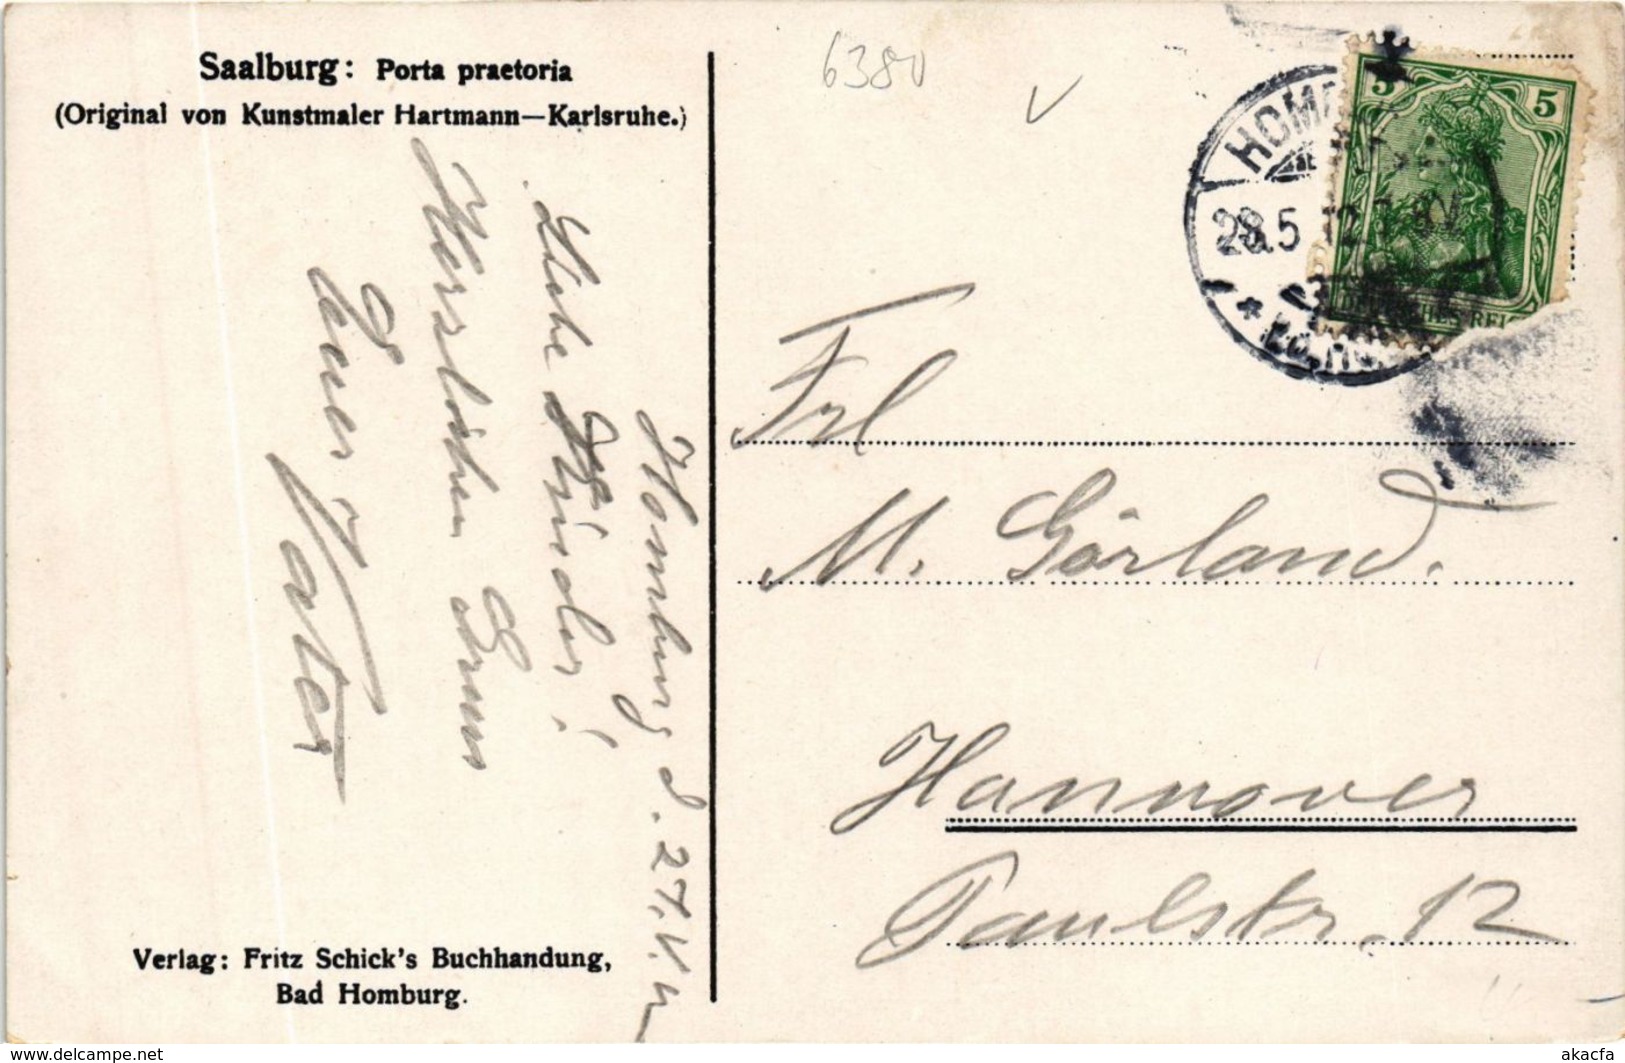 Saalburg: Porta praetoria
(Original von Kunstmaler Hartmann—Karlsruhe.)
6380
5
5
HOMB
28.5.12
DEUTSCHES REI
Homburg d. 27.V.12
Liebe Kinder!
Herzlichen Gruss
Euer Vater
Frl
M. Görland.
Hannover
Paulstr. 12
Verlag: Fritz Schick's Buchhandung,
Bad Homburg.
www.delcampe.net
akacfa